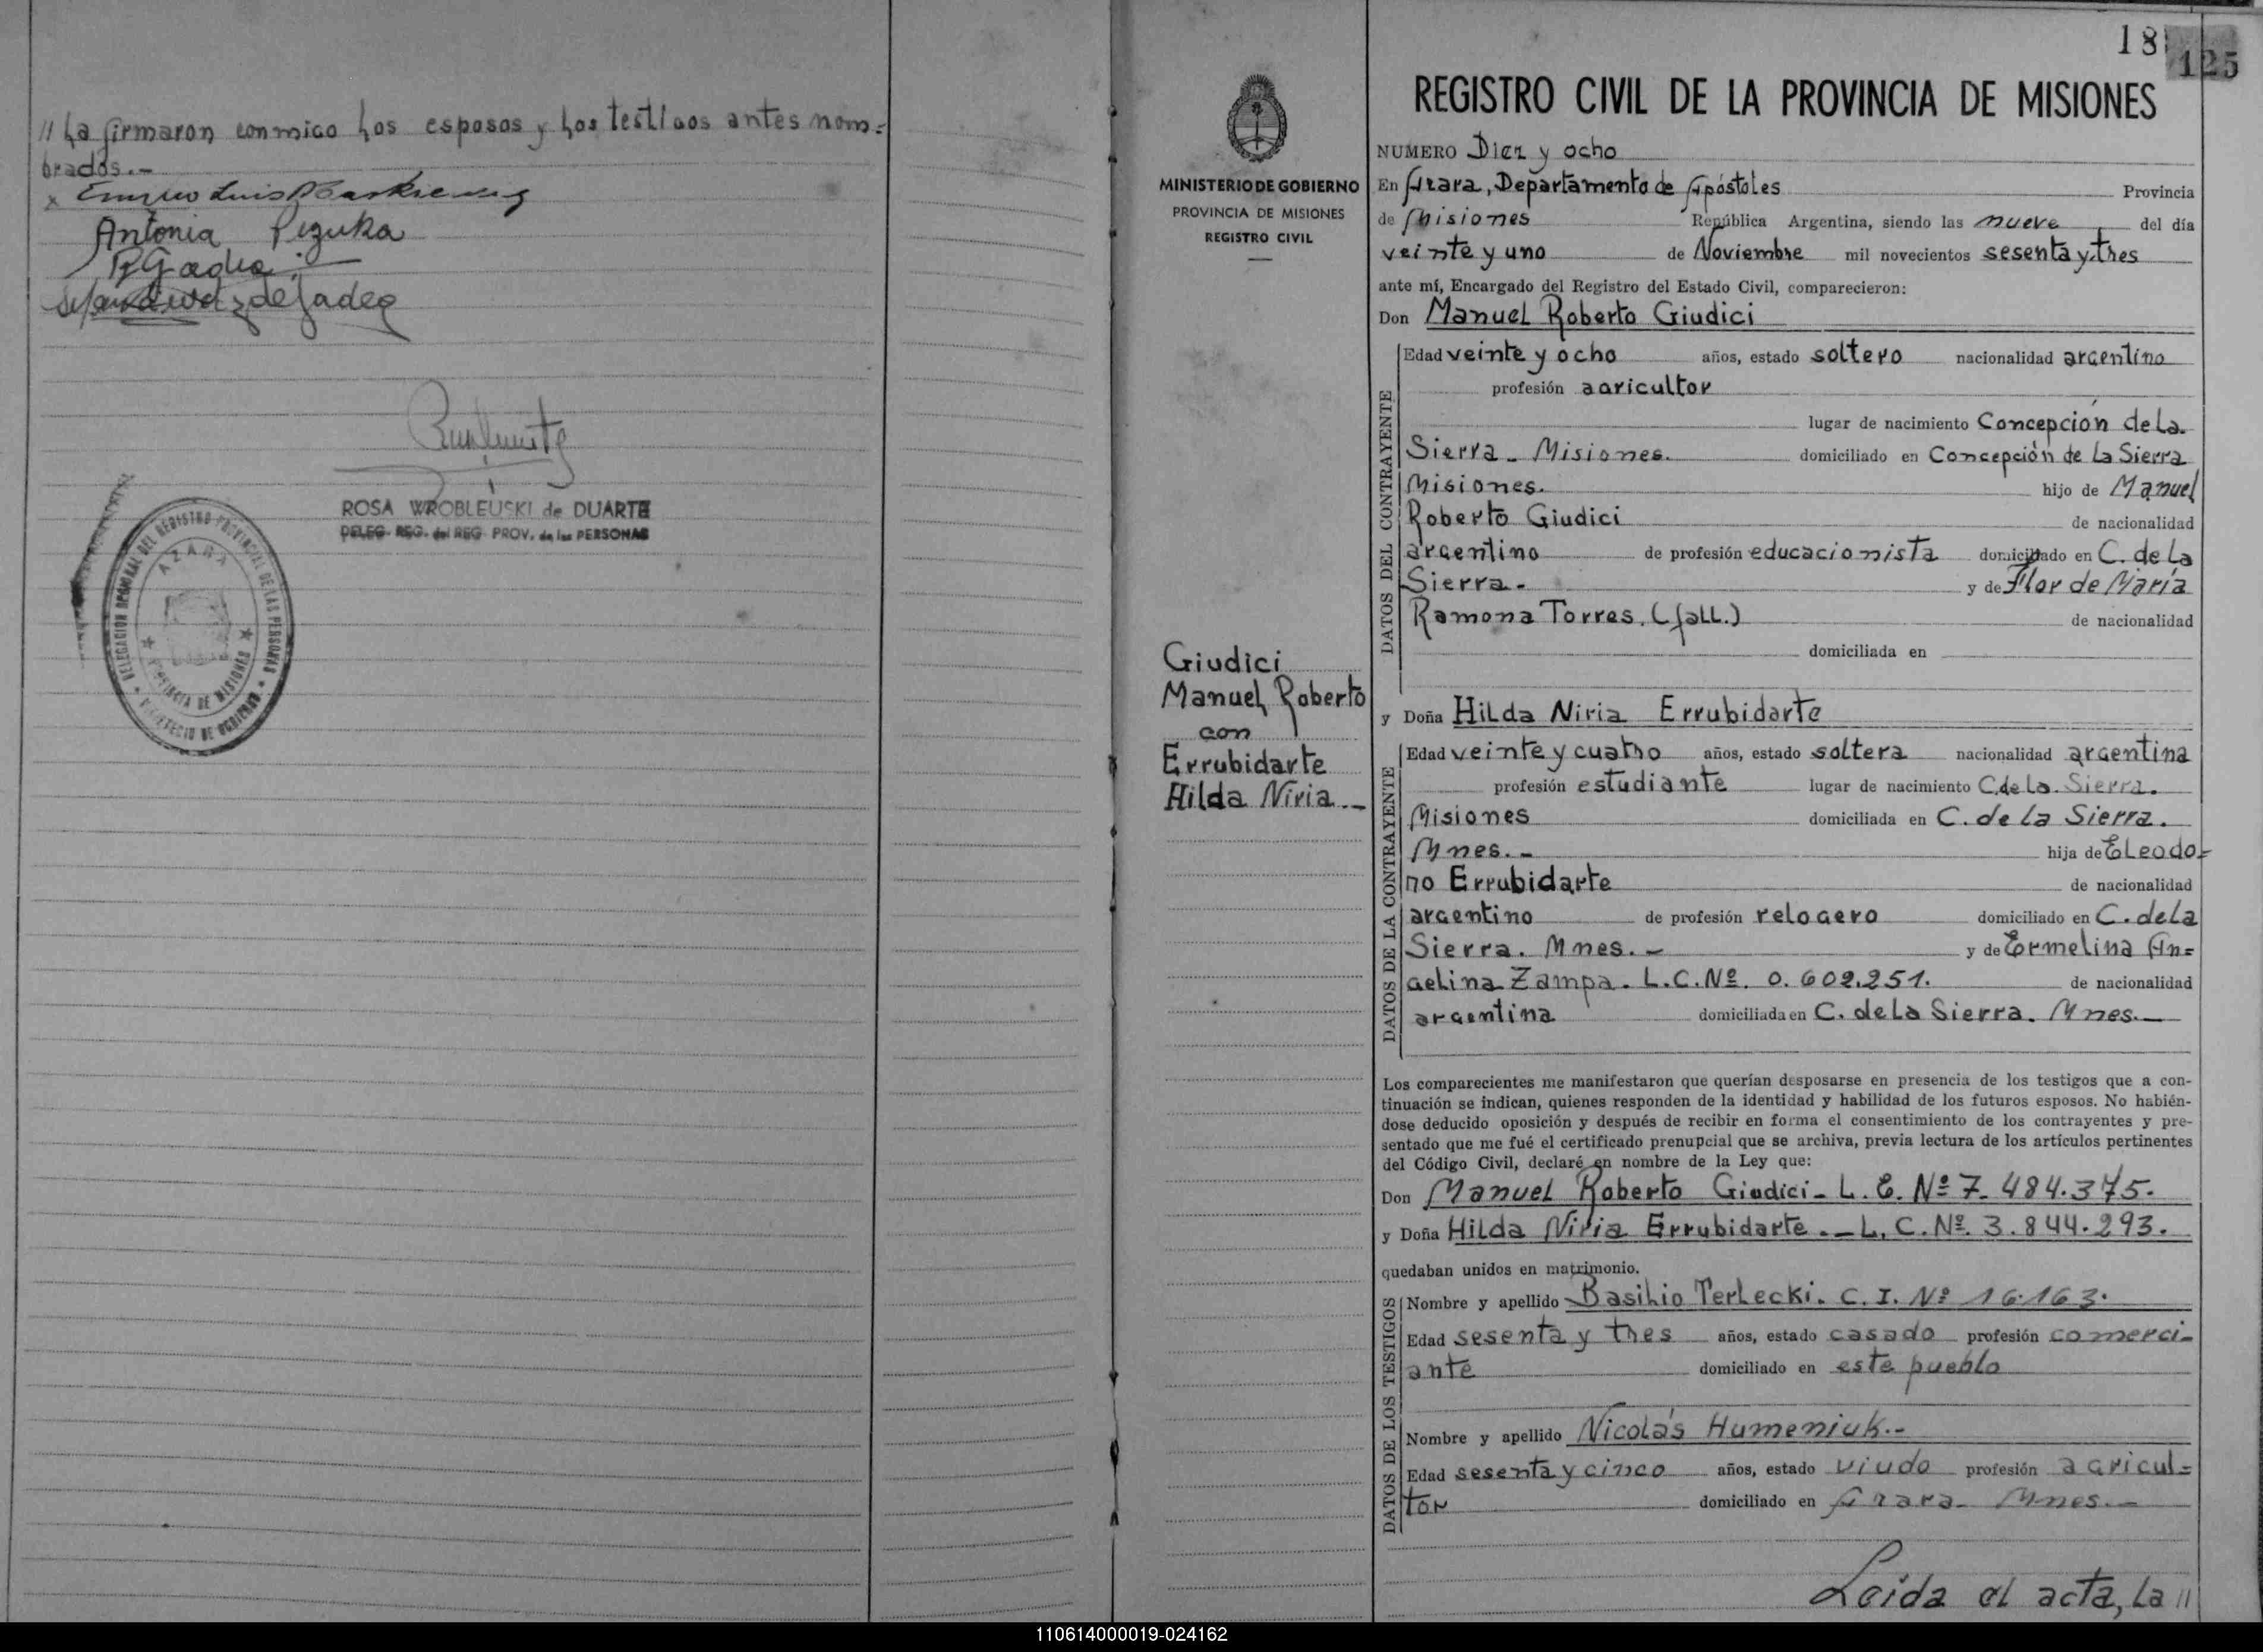 // La firmaron conmigo los esposos y los testigos antes nom=
brados.-
Antonia Pezuka
ROSA WROBLEUSKI de DUARTE
DELEG. REG. del REG. PROV. de las PERSONAS
DELEGACION REGIONAL DEL REGISTRO PROVINCIAL DE LAS PERSONAS
AZARA
PROVINCIA DE MISIONES
MINISTERIO DE GOBIERNO
18
125
MINISTERIO DE GOBIERNO
PROVINCIA DE MISIONES
REGISTRO CIVIL
Giudici
Manuel Roberto
con
Errubidarte
Hilda Niria.-
REGISTRO CIVIL DE LA PROVINCIA DE MISIONES
NUMERO Diez y ocho
En Azara, Departamento de Apóstoles Provincia
de Misiones República Argentina, siendo las nueve del día
veinte y uno de Noviembre mil novecientos sesenta y tres
ante mí, Encargado del Registro del Estado Civil, comparecieron:
Don Manuel Roberto Giudici
DATOS DEL CONTRAYENTE
Edad veinte y ocho años, estado soltero nacionalidad argentino
profesión agricultor
lugar de nacimiento Concepción de La
Sierra - Misiones. domiciliado en Concepción de La Sierra
Misiones. hijo de Manuel
Roberto Giudici de nacionalidad
argentino de profesión educacionista domiciliado en C. de La
Sierra- y de Flor de María
Ramona Torres. (fall.) de nacionalidad
domiciliada en
y Doña Hilda Niria Errubidarte
DATOS DE LA CONTRAYENTE
Edad veinte y cuatro años, estado soltera nacionalidad argentina
profesión estudiante lugar de nacimiento C. de La Sierra.
Misiones domiciliada en C. de La Sierra.
Mnes.- hija de Eleodo=
no Errubidarte de nacionalidad
argentino de profesión relogero domiciliado en C. de La
Sierra. Mnes.- y de Ermelina An=
gelina Zampa. L.C.Nº. 0.602.251. de nacionalidad
argentina domiciliada en C. de La Sierra. Mnes.-
Los comparecientes me manifestaron que querían desposarse en presencia de los testigos que a con-
tinuación se indican, quienes responden de la identidad y habilidad de los futuros esposos. No habién-
dose deducido oposición y después de recibir en forma el consentimiento de los contrayentes y pre-
sentado que me fué el certificado prenupcial que se archiva, previa lectura de los artículos pertinentes
del Código Civil, declaré en nombre de la Ley que:
Don Manuel Roberto Giudici- L. E. Nº 7.484.375.
y Doña Hilda Niria Errubidarte.- L. C. Nº. 3.844.293.
quedaban unidos en matrimonio.
DATOS DE LOS TESTIGOS
Nombre y apellido Basilio Terlecki. C. I. Nº 16.163.
Edad sesenta y tres años, estado casado profesión comerci-
ante domiciliado en este pueblo
Nombre y apellido Nicolás Humeniuk.-
Edad sesenta y cinco años, estado viudo profesión agricul=
tor domiciliado en Azara- Mnes.-
Leida el acta, La //
110614000019-024162